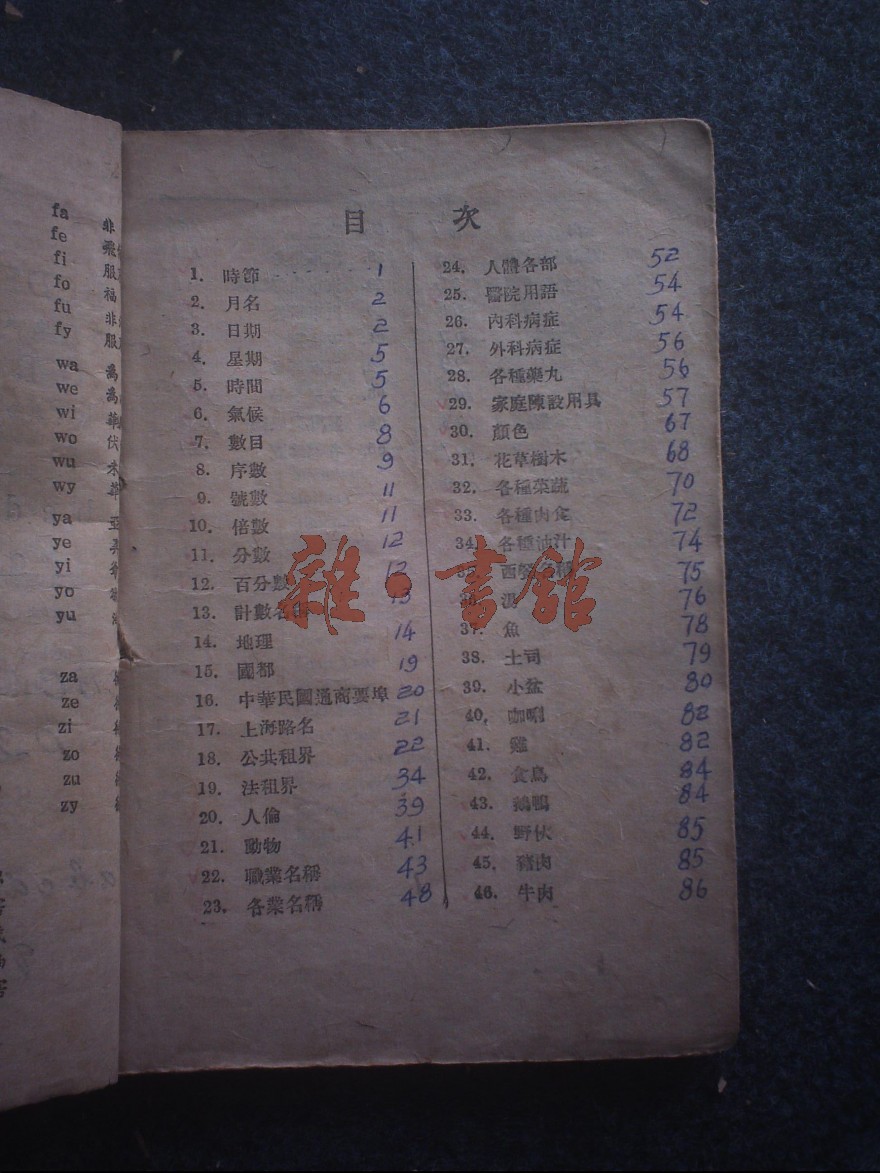 fa
fe
fi
fo
fu
fy
wa
we
wi
wo
wu
wy
ya
ye
yi
yo
yu
za
ze
zi
zo
zu
zy
非
飛
服
福
非
服
目 次
1. 時節 1
2. 月名 2
3. 日期 2
4. 星期 5
5. 時間 5
6. 氣候 6
7. 數目 8
8. 序數 9
9. 號數 11
10. 倍數 11
11. 分數 12
12. 百分數 12
13. 計數名 13
14. 地理 14
15. 國都 19
16. 中華民國通商要埠 20
17. 上海路名 21
18. 公共租界 22
19. 法租界 34
20. 人倫 39
21. 動物 41
22. 職業名稱 43
23. 各業名稱 48
24. 人體各部 52
25. 醫院用語 54
26. 內科病症 54
27. 外科病症 56
28. 各種藥丸 56
29. 家庭陳設用具 57
30. 顏色 67
31. 花草樹木 68
32. 各種菜蔬 70
33. 各種肉食 72
34. 各種油汁 74
西餐 75
湯 76
37. 魚 78
38. 土司 79
39. 小盆 80
40. 咖喱 82
41. 雞 82
42. 食鳥 84
43. 鵝鴨 84
44. 野伙 85
45. 豬肉 85
46. 牛肉 86
雜·書館